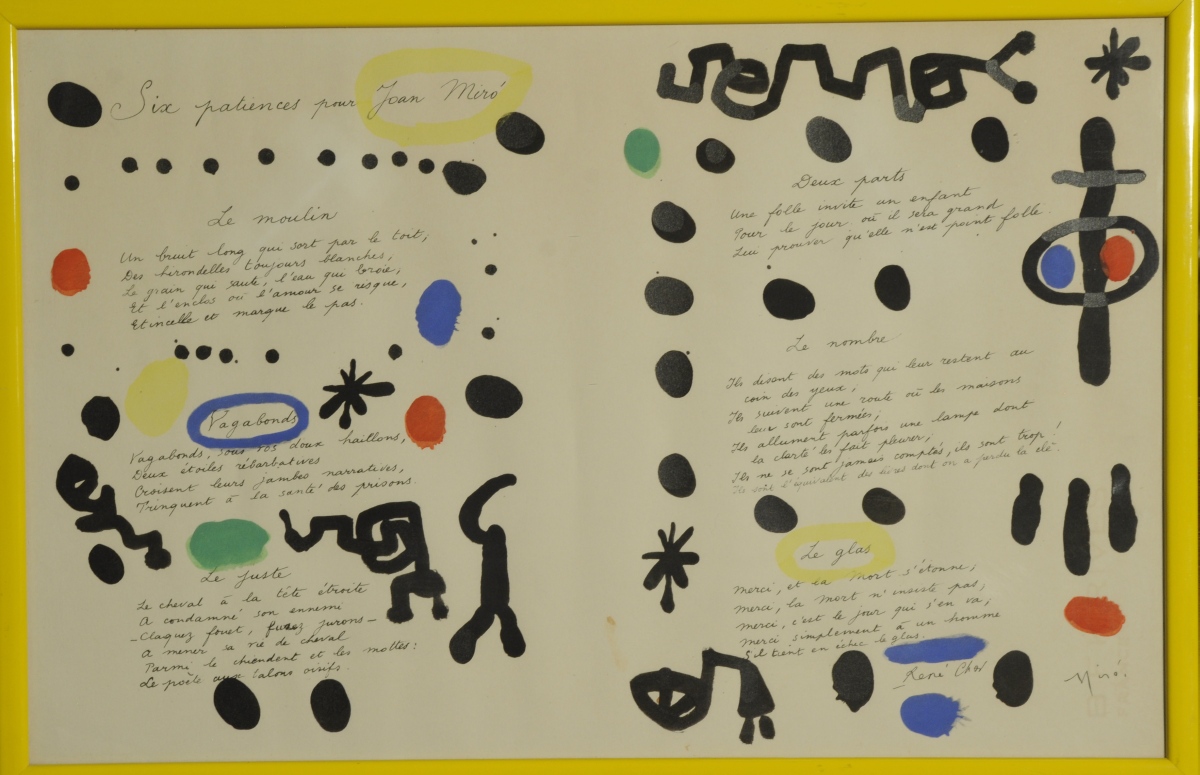 Six patiences pour Joan Miró
Le moulin
Un bruit long qui sort par le toit;
Des hirondelles toujours blanches,
Le grain qui saute, l'eau qui broie;
Et l'enclos où l'amour se risque,
Etincelle et marque le pas.
Vagabonds
Vagabonds, sous vos doux haillons,
Deux étoiles rébarbatives
Croisent leurs jambes narratives,
Trinquent à la santé des prisons.
Le juste
Le cheval à la tête étroite
A condamné son ennemi
- Claquez fouet, jurons -
A mener sa vie de cheval
Parmi le chiendent et les mottes:
Le poète aux talons oisifs.
Deux parts
Une folle invite un enfant
Pour le jour où il sera grand
Lui prouver qu'elle n'est point folle.
Le nombre
Ils disent des mots qui leur restent au
coin des yeux;
Ils suivent une route où les maisons
leur sont fermées;
Ils allument parfois une lampe dont
la clarté les fait pleurer;
Ils ne se sont jamais comptés, ils sont trop!
Ils sont l'équivalent des livres dont on a perdu la clé.
Le glas
Merci, et la Mort s'étonne;
Merci, la Mort n'insiste pas;
Merci, c'est le jour qui s'en va;
Merci simplement à un homme
S'il tient en échec le glas.
René Char
Miró.